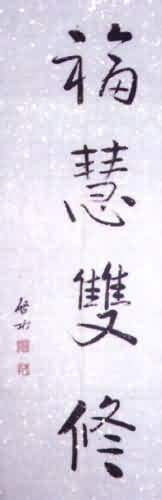 福慧雙修
啓功